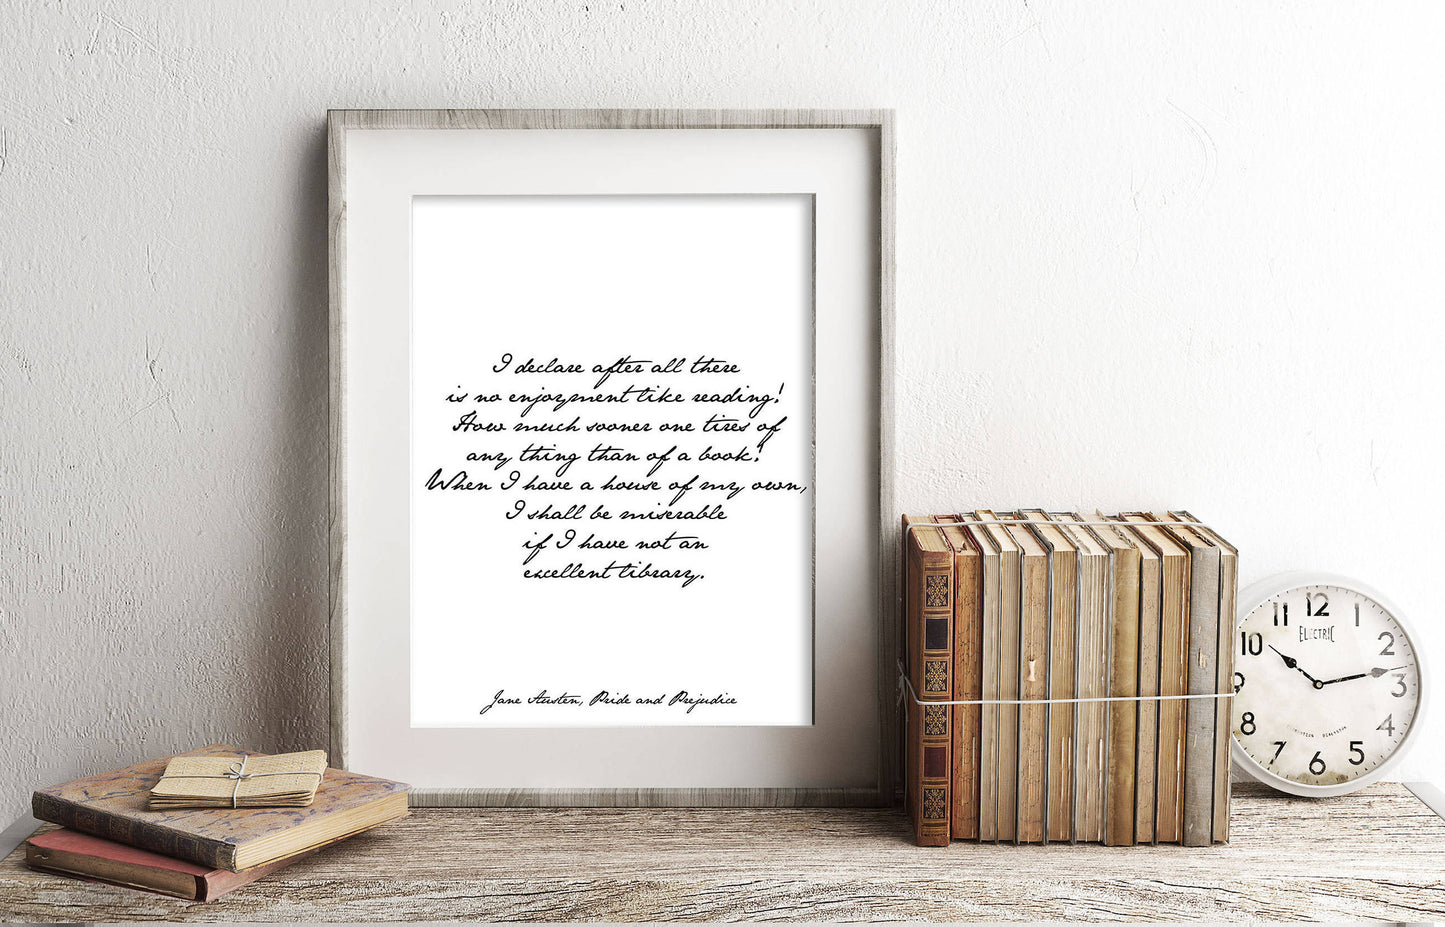 I declare after all there
is no enjoyment like reading!
How much sooner one tires of
any thing than of a book!
When I have a house of my own,
I shall be miserable
if I have not an
excellent library.
Jane Austen, Pride and Prejudice
11 12 1
ELECTRIC
10 2
3
8 4
7 6 5